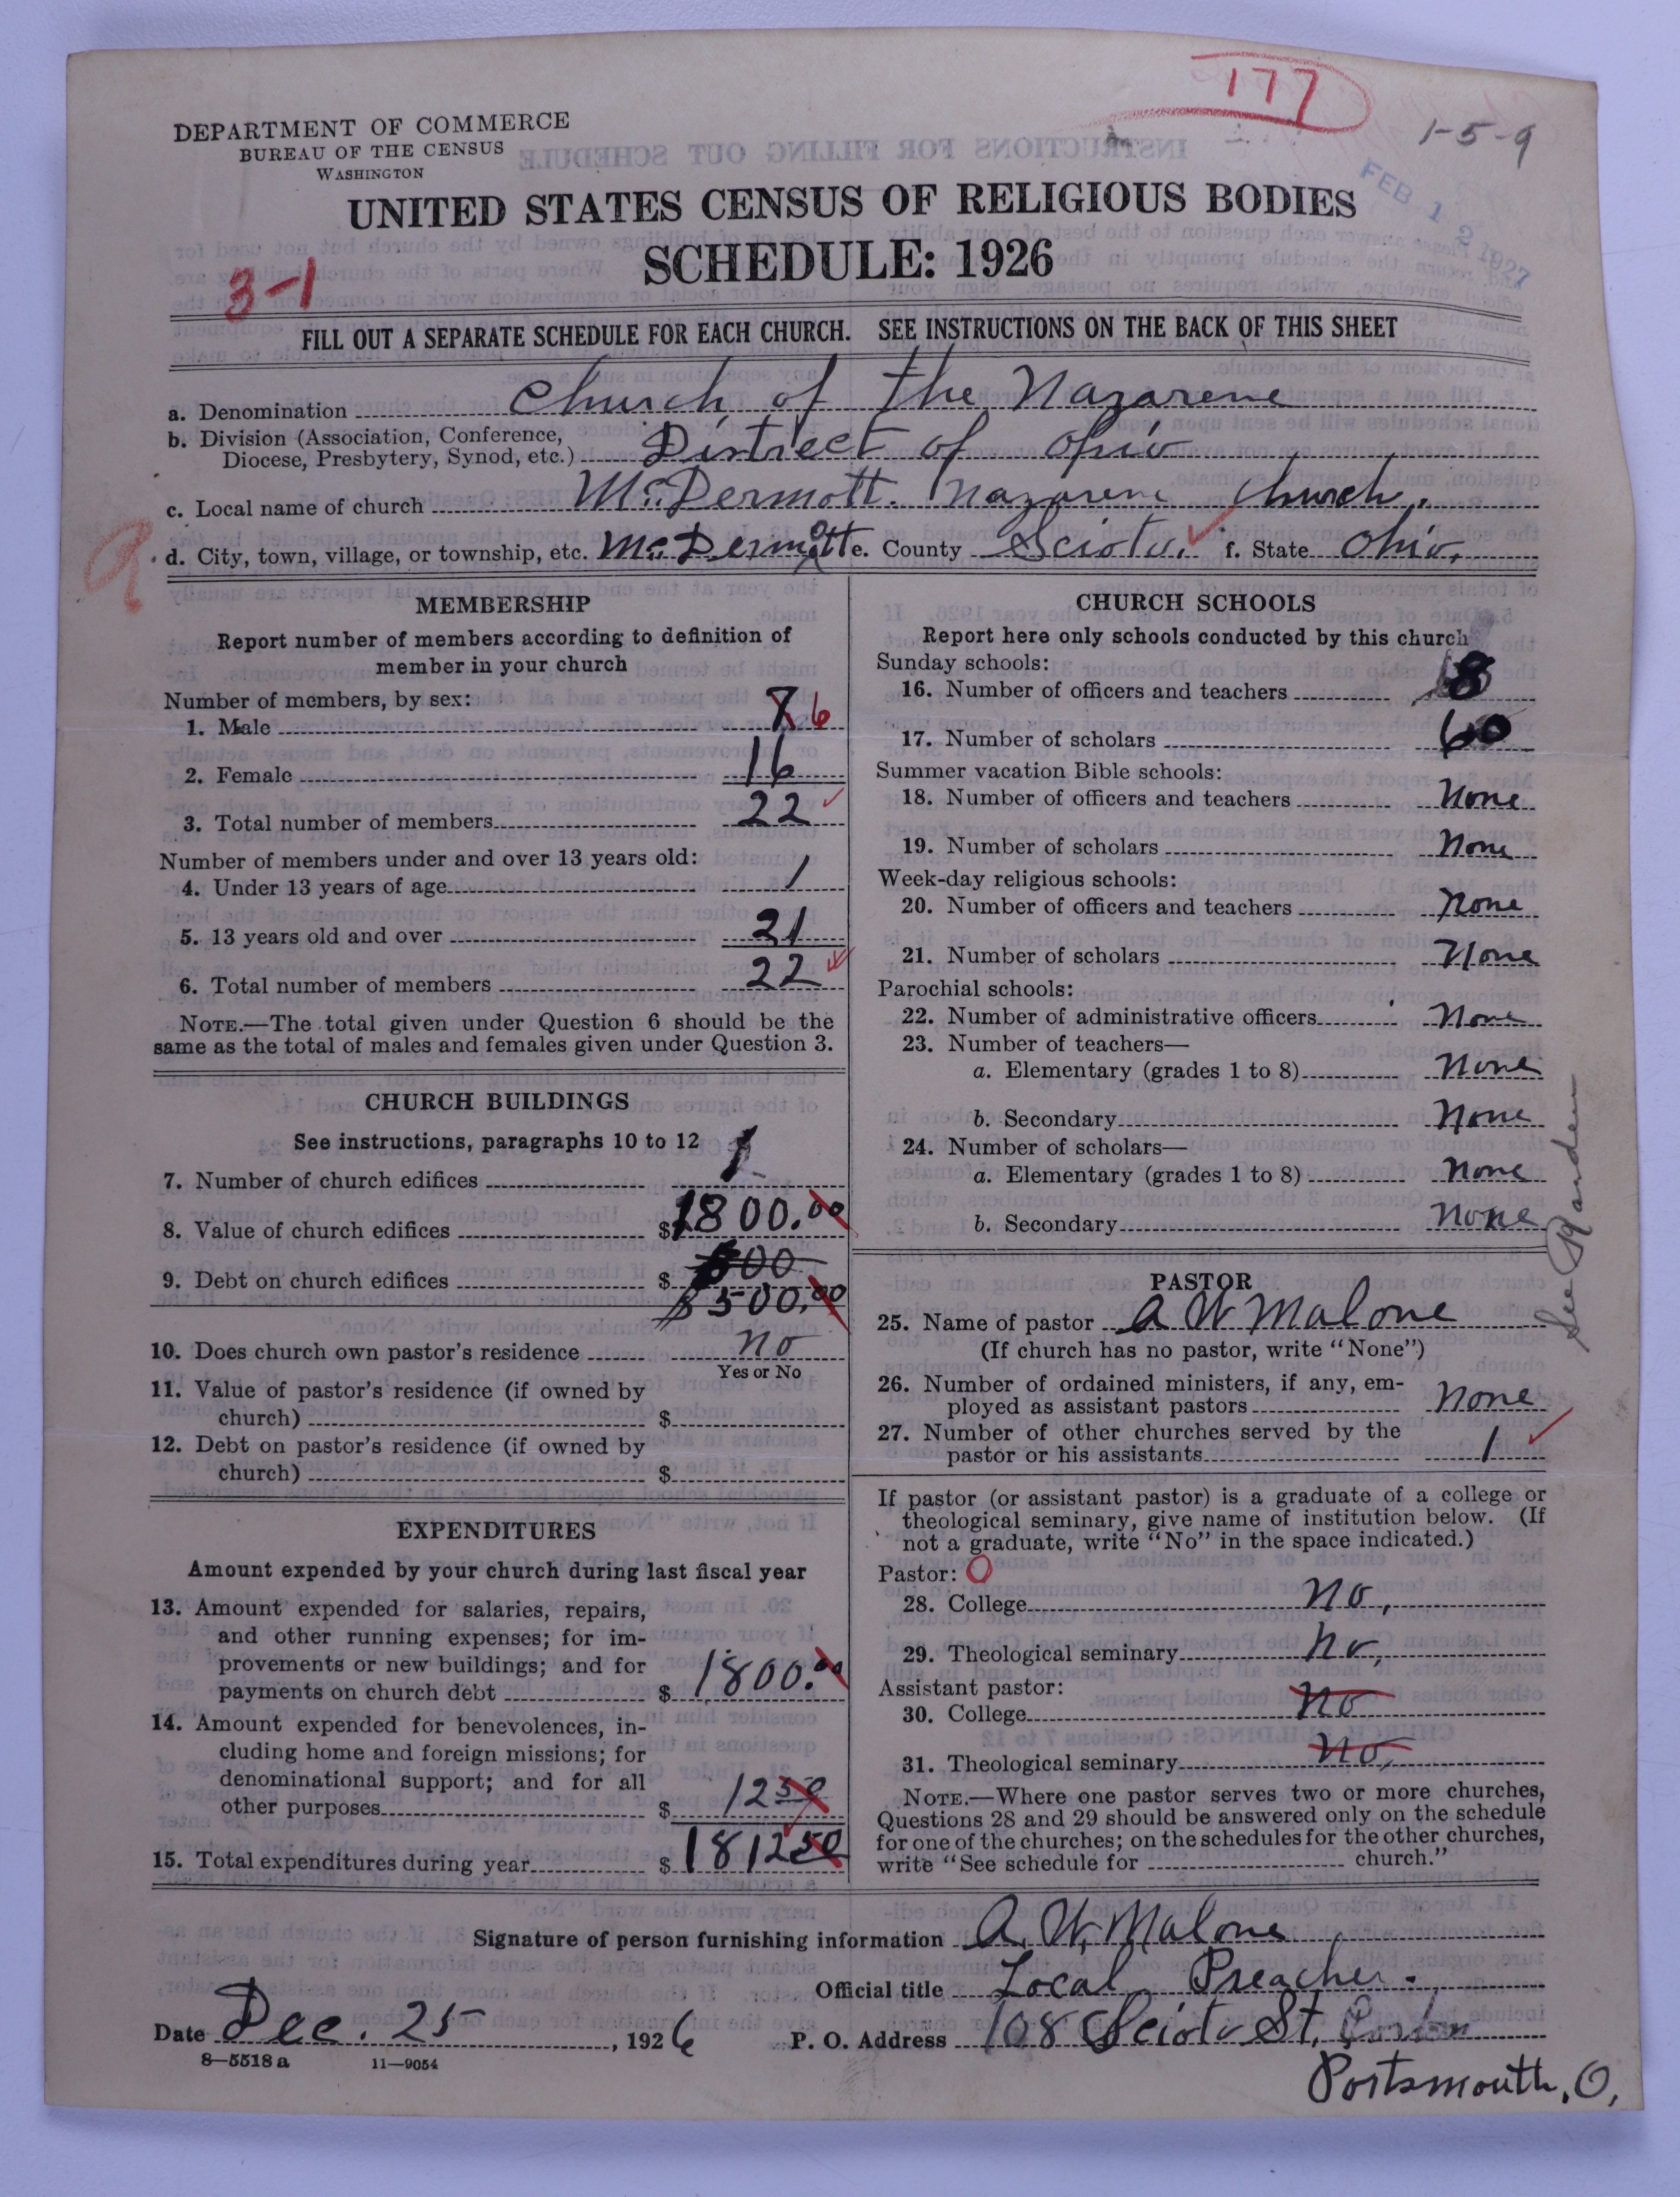 177
1-5-9
DEPARTMENT OF COMMERCE
BUREAU OF THE CENSUS
WASHINGTON
FEB 12 1927
UNITED STATES CENSUS OF RELIGIOUS BODIES
SCHEDULE: 1926
3-1
FILL OUT A SEPARATE SCHEDULE FOR EACH CHURCH. SEE INSTRUCTIONS ON THE BACK OF THIS SHEET
a. Denomination Church of the Nazarene
b. Division (Association, Conference, Diocese, Presbytery, Synod, etc.) District of Ohio
c. Local name of church McDermott. Nazarene Church.
d. City, town, village, or township, etc. McDermott e. County Scioto. f. State Ohio.
MEMBERSHIP
Report number of members according to definition of
member in your church
Number of members, by sex:
1. Male 8 6
2. Female 16
3. Total number of members 22
Number of members under and over 13 years old:
4. Under 13 years of age 1
5. 13 years old and over 21
6. Total number of members 22
NOTE.—The total given under Question 6 should be the
same as the total of males and females given under Question 3.
CHURCH BUILDINGS
See instructions, paragraphs 10 to 12
7. Number of church edifices 1
8. Value of church edifices $1800.00
9. Debt on church edifices $ 500
$500.00
10. Does church own pastor's residence no
Yes or No
11. Value of pastor's residence (if owned by
church) $
12. Debt on pastor's residence (if owned by
church) $
EXPENDITURES
Amount expended by your church during last fiscal year
13. Amount expended for salaries, repairs,
and other running expenses; for im-
provements or new buildings; and for
payments on church debt $ 1800.00
14. Amount expended for benevolences, in-
cluding home and foreign missions; for
denominational support; and for all
other purposes $ 12 50
15. Total expenditures during year $ 1812 50
CHURCH SCHOOLS
Report here only schools conducted by this church
Sunday schools:
16. Number of officers and teachers 8
17. Number of scholars 60
Summer vacation Bible schools:
18. Number of officers and teachers None
19. Number of scholars None
Week-day religious schools:
20. Number of officers and teachers None
21. Number of scholars None
Parochial schools:
22. Number of administrative officers None
23. Number of teachers—
a. Elementary (grades 1 to 8) None
b. Secondary None
24. Number of scholars—
a. Elementary (grades 1 to 8) None
b. Secondary None
See
PASTOR
25. Name of pastor A W Malone
(If church has no pastor, write "None")
26. Number of ordained ministers, if any, em-
ployed as assistant pastors None
27. Number of other churches served by the
pastor or his assistants 1
If pastor (or assistant pastor) is a graduate of a college or
theological seminary, give name of institution below. (If
not a graduate, write "No" in the space indicated.)
Pastor: O
28. College No,
29. Theological seminary No,
Assistant pastor:
30. College No
31. Theological seminary No,
NOTE.—Where one pastor serves two or more churches,
Questions 28 and 29 should be answered only on the schedule
for one of the churches; on the schedules for the other churches,
write "See schedule for church."
Signature of person furnishing information A. W. Malone
Official title Local Preacher.
Date Dec. 25, 1926 P. O. Address 108 Scioto St,
Portsmouth, O,
8—5518 a 11—9054